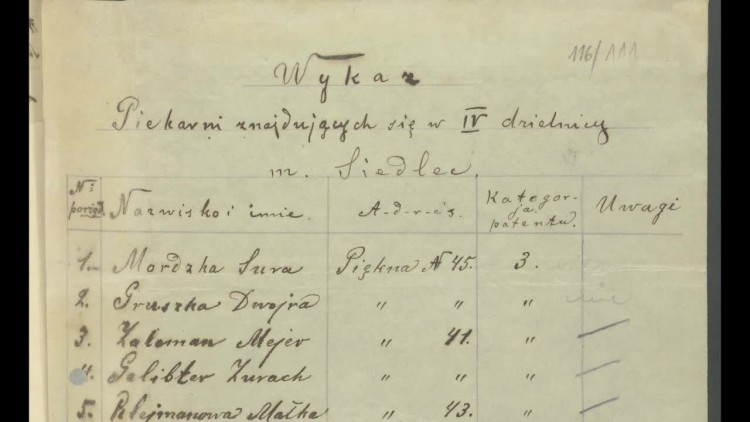 116/111
Wykaz
Piekarni znajdujących się w IV dzielnicy
m. Siedlec.
№ porząd. Nazwisko i imie. A-d-r-e-s. Kategor-ja patentu. Uwagi
1. Mordzka Sura Piękna № 45. 3.
2. Gruszka Dwojra " " "
3. Zaloman Mejer " 41. "
4. Gelibter Zurach " " "
5. Klejmanowa Małka " 43. "